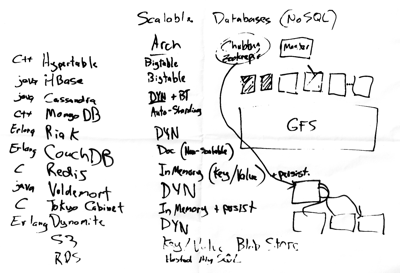 Scalable Databases (NoSQL)
Arch
Chubby
Zookeeper
Master
C++ Hypertable Bigtable
java HBase Bigtable
java Cassandra DYN + BT
C++ MongoDB Auto-Sharding
Erlang Riak DYN
Erlang CouchDB Doc (Non-Scalable)
C Redis In Memory (Key/Value) + persist.
java Voldemort DYN
C Tokyo Cabinet In Memory + persist
Erlang Dynomite DYN
S3 Key/Value Blob Store
RDS Hosted My SQL
GFS